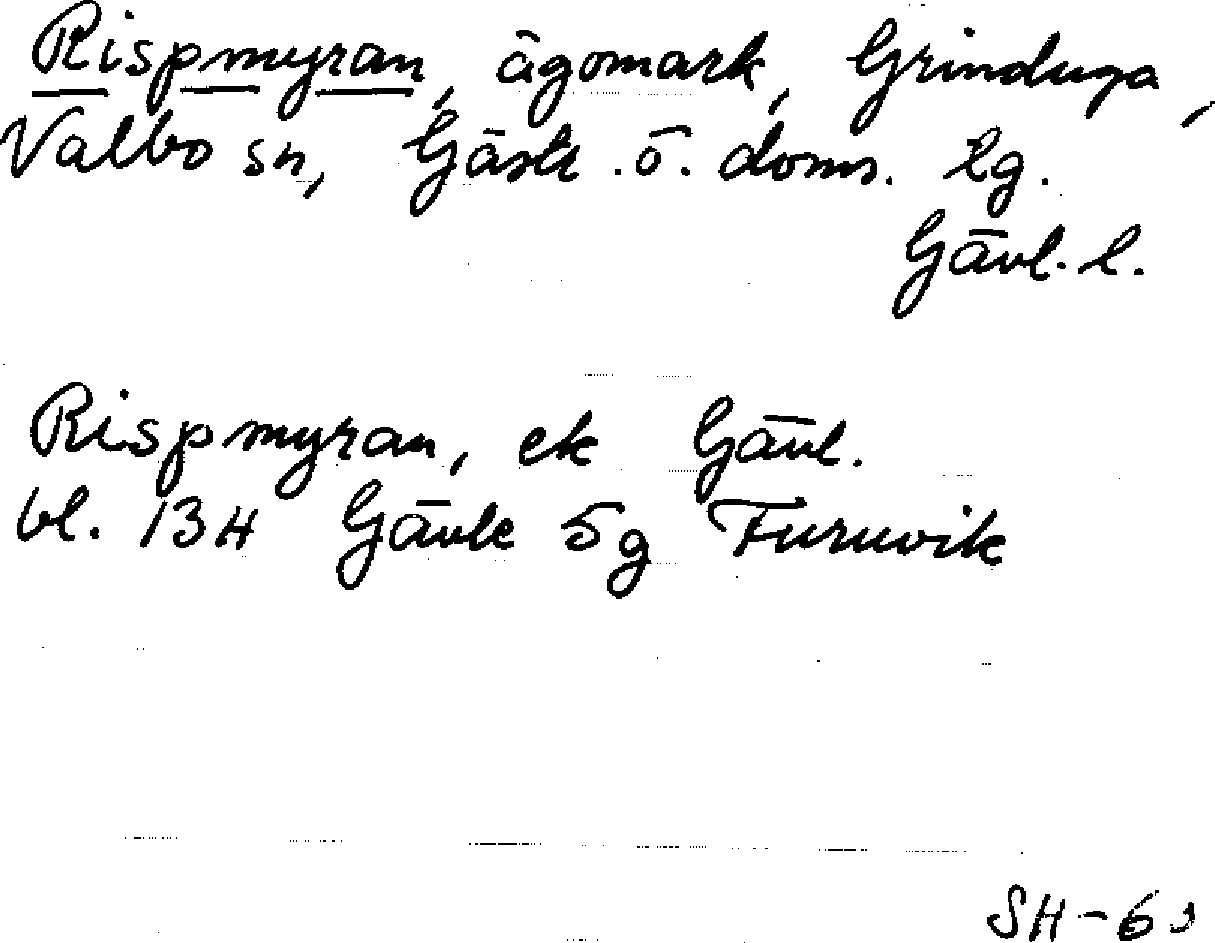 Rispmyran, ägomark, Grinduga,
Valbo sn, Gästr. ö. doms. lg.
Gävl. l.
Rispmyran, ek Gävl.
bl. 13H Gävle 5g Furuvik